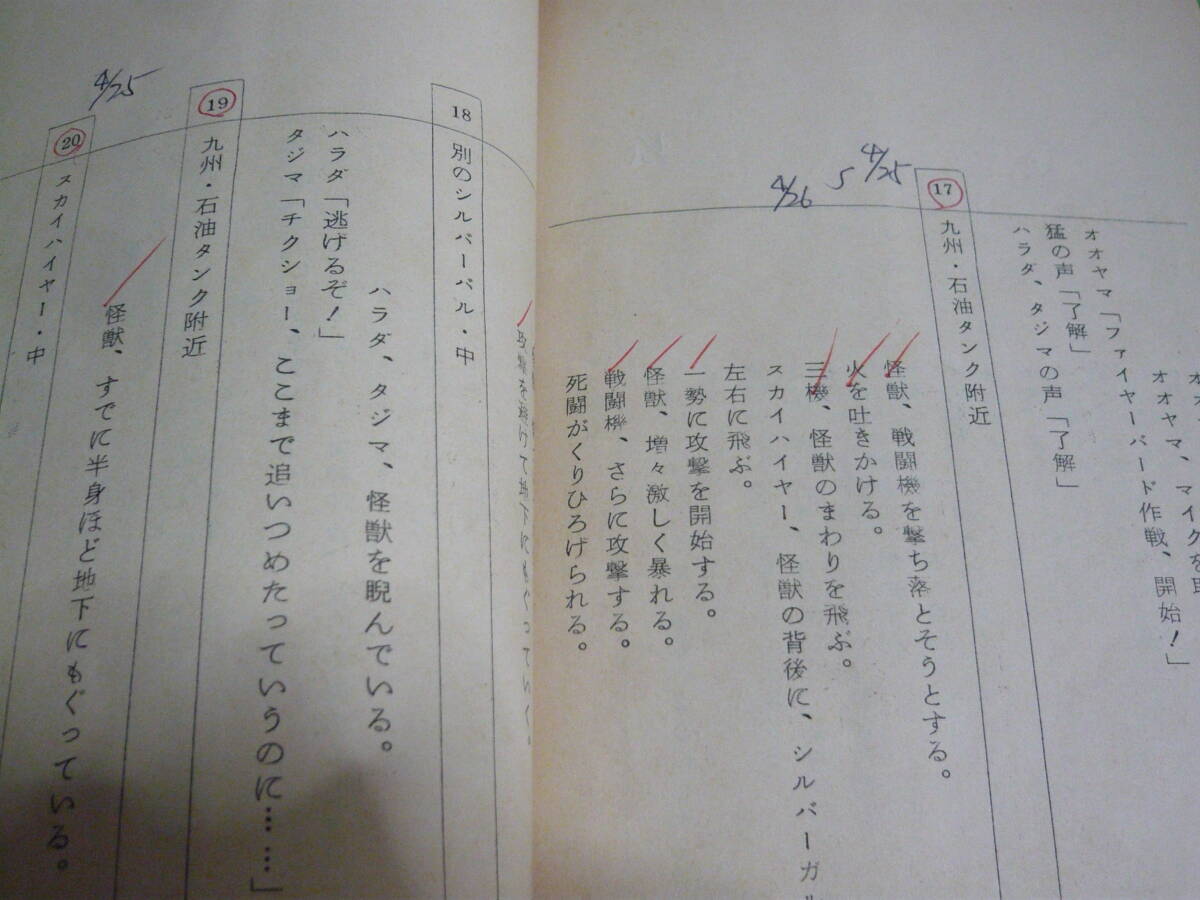 オオヤマ、マイクを
オオヤマ「ファイヤーバード作戦、開始！」
猛の声「了解」
ハラダ、タジマの声「了解」
4/25
5
4/26
17 九州・石油タンク附近
怪獣、戦闘機を撃ち落とそうとする。
火を吐きかける。
三機、怪獣のまわりを飛ぶ。
スカイハイヤー、怪獣の背後に、シルバーガル
左右に飛ぶ。
一勢に攻撃を開始する。
怪獣、増々激しく暴れる。
戦闘機、さらに攻撃する。
死闘がくりひろげられる。
けて地下にもぐっていく。
18 別のシルバーバル・中
ハラダ、タジマ、怪獣を睨んでいる。
ハラダ「逃げるぞ！」
タジマ「チクショー、ここまで追いつめたっていうのに……」
19 九州・石油タンク附近
4/25
怪獣、すでに半身ほど地下にもぐっている。
20 スカイハイヤー・中